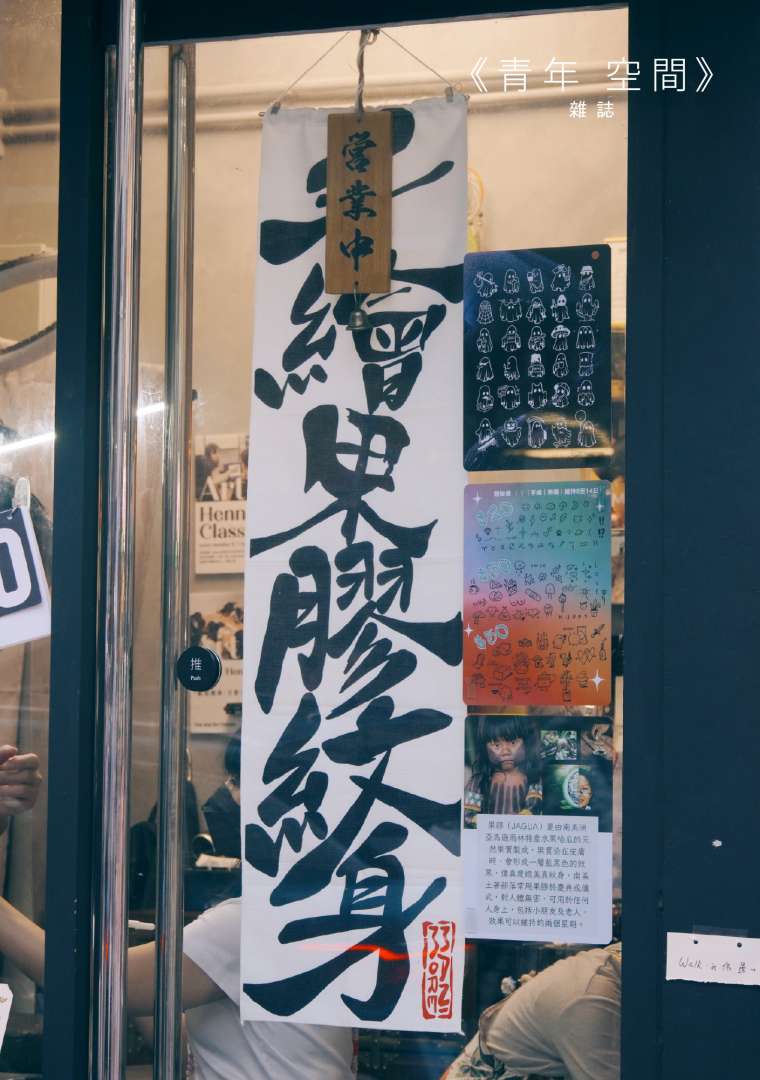 《青年 空間》
雜誌
營業中
手繪果膠紋身
推
Push
Henn
Class
果膠（JAGUA）是由南美洲
亞馬遜雨林特產水果哈瓜的天
然果實製成，果實在皮膚
時，會形成一層藍黑色的效
果，像真度媲美真紋身，南美
土著部落常用果膠於慶典或儀
式，對人體無害，可用於任何
人身上，包括小朋友及老人，
效果可以維持約兩個星期。
Walk in